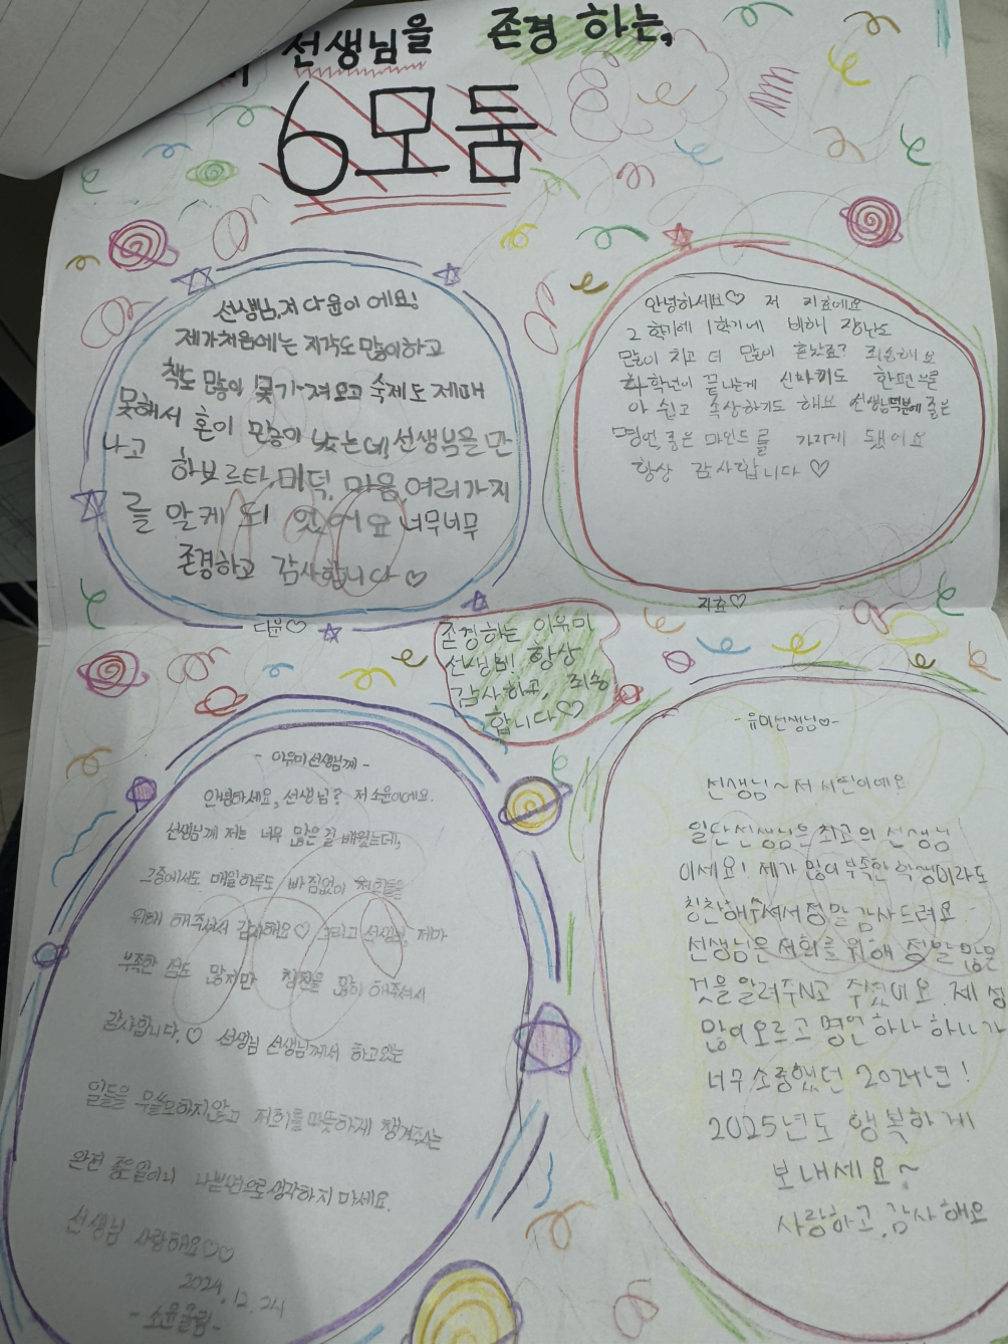 선생님을 존경 하는,
6모둠
선생님, 저 다윤이에요!
제가처음에는 지각도 많이하고
책도 많이 못가져오고 숙제도 제때
못해서 혼이 많이 났는데, 선생님을 만
나고 하브르타, 미덕, 마음, 여러가지
를 알게 되 었어요 너무너무
존경하고 감사합니다♡
다윤♡
안녕하세요♡ 저 지효에요
2학기에 1학기에 비해 장난도
많이 치고 더 많이 혼났죠? 죄송해요
학년이 끝나는게 신나끼도 한편으론
아쉽고 속상하기도 해요 선생님덕분에 좋은
명언, 좋은 마인드를 가지게 됐어요
항상 감사합니다♡
지효♡
존경하는 이유미
선생님! 항상
감사하고, 죄송
합니다♡
- 이유미선생님께 -
안녕하세요, 선생님? 저 소윤이에요.
선생님께 저는 너무 많은걸 배웠는데,
그중에서도 매일하루도 빠짐없이 저희들을
위해 해주셔서 감사해요♡ 그리고 선생님, 제가
부족한 점도 많지만 칭찬을 많이 해주셔서
감사합니다.♡ 선생님 선생님께서 하고있는
일들을 무쓸모하지않고 저희를따뜻하게 챙겨주시는
완전 좋은꼴이니 나쁜면으로생각하지 마세요.
선생님 사랑해요♡♡
2024.12.24
-소윤올림-
-유미선생님♡-
선생님~저 시연이에요
일단선생님은최고의 선생님
이세요! 제가 많이부족한 학생이라도
칭찬해주셔서정말감사드려요
선생님은저희를위해 정말많은
것을알려주시고 주셨어요. 제 성
많이오르고 명언하나 하나가
너무소중했던 2024년!
2025년도 행복하게
보내세요~
사랑하고, 감사해요